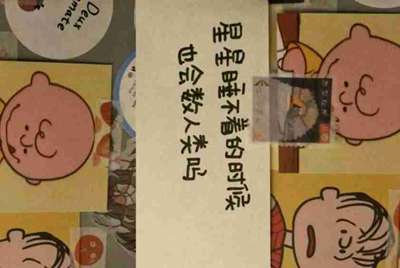 星星睡不着的时候
也会数人类吗
Deux